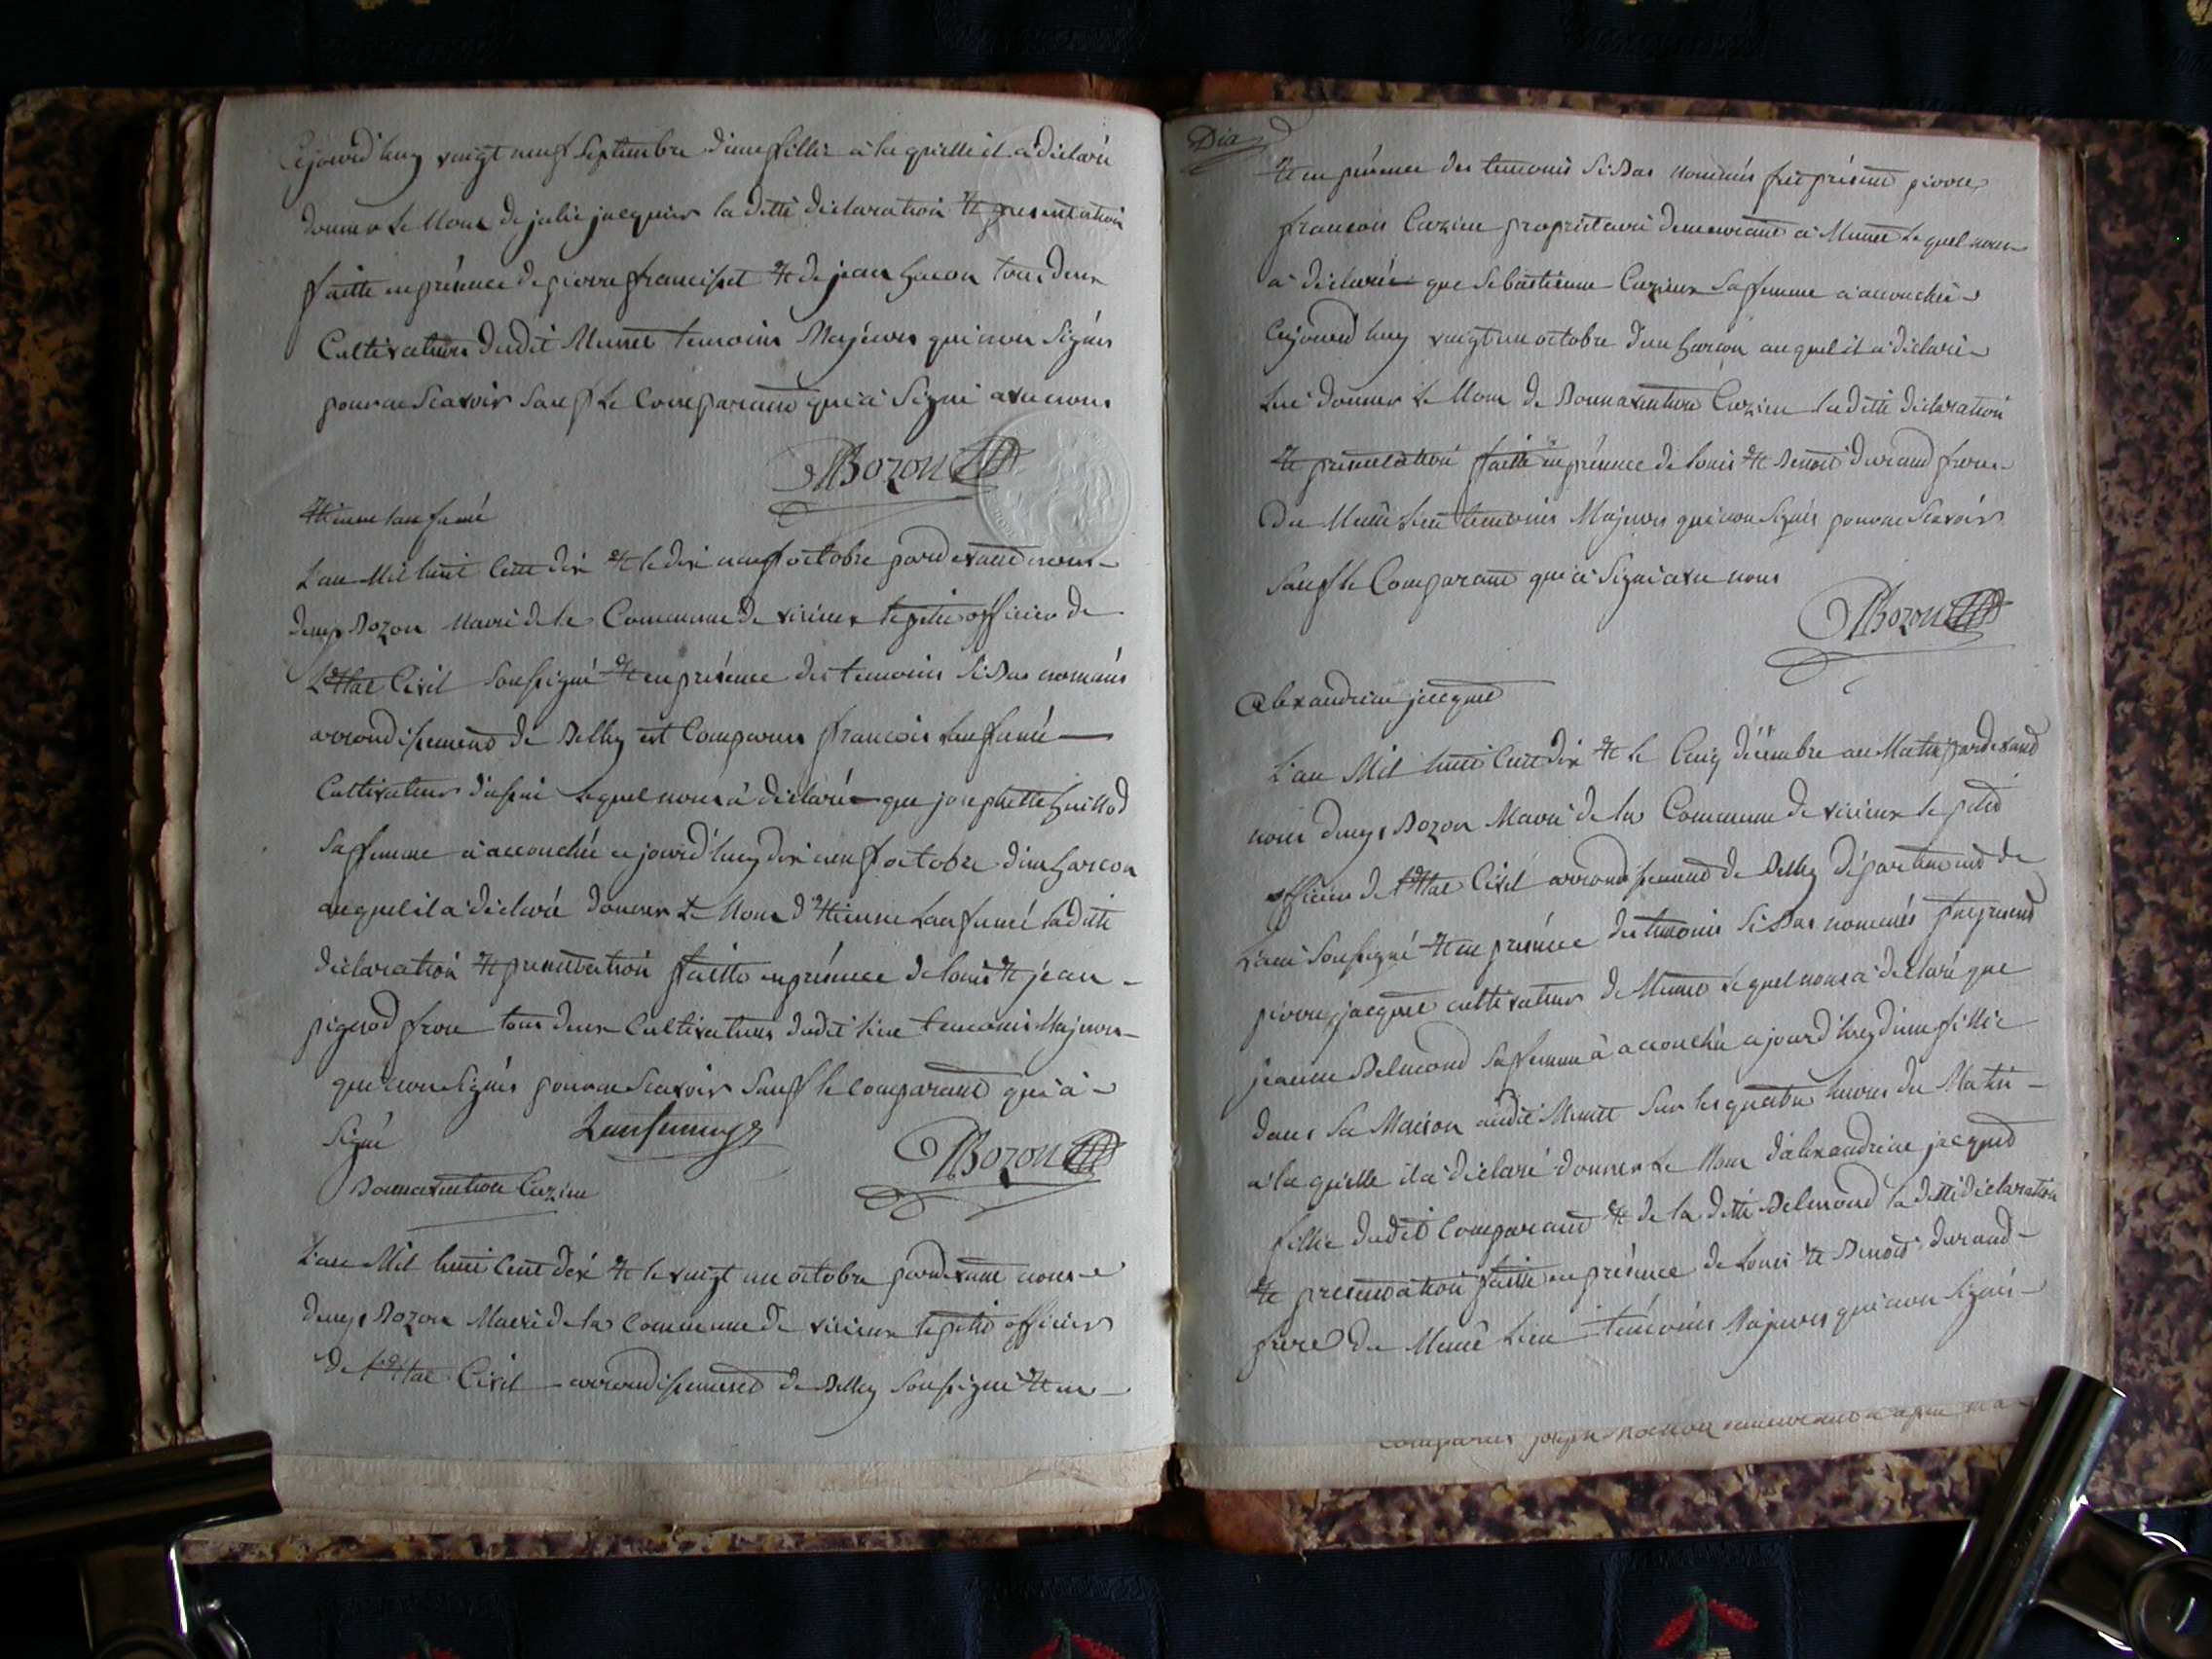 Cejourd'huy vingt neuf Septembre d'une fillie à laquielle il a déclaré
donner Le Nom de julie jacquier la ditte déclaration et presentation
faitte en présence de pierre francisset et de jean Gacon tous deux
Cultivateurs dudit Munet temoins Majeurs qui non Signés
pour ne Scavoir Sauf Le Comparant qui a Signé avec nous
DBozon
Etienne Lanfumé
L'an Mil huit Cent dix et le dix neuf octobre pardevant nous
denys Bozon Maire de la Commune de virieux le petit officier de
L'Etat Civil Soussigné et en présence des temoins Si Bas nommés
arrondissement de Belley est Comparus francois Lanfumé
Cultivateur d'assin Lequel nous à déclaré que josephette Guillod
Sa femme à accouchée cejourd'huy dix neuf octobre d'un Garcon
auquel il a déclaré donner Le Nom d'Etienne Lanfumé laditte
déclaration et presentation faitte en présence de louis et jean
pigerod frere tous deux Cultivateurs dudit lieu temoins Majeurs
qui non Signés pour ne Scavoir Sauf le Comparant qui à
Signé Lanfumey DBozon
Bonnaventure Cuzin
L'an Mil huit Cent dix et le vingt un octobre pardevant nous
denys Bozon Maire de la Commune de virieux le petit officier
de l'Etat Civil arrondissement de Belley Soussigné et en
et en présence des temoins Si Bas nommés fut présent pierre
francois Cuzin propriétaire demeurant à Munet Lequel nous
a déclaré que Sebastienne Cuzin Sa femme à accouchée
Cejourd'huy vingt un octobre d'un Garcon auquel il a déclaré
Lui donner Le Nom de Bonnaventure Cuzin laditte déclaration
et presentation faitte en présence de louis et Benoit durand frere
Du Même Lieu temoins Majeurs qui non Signés pour ne Scavoir
Sauf le Comparant qui à Signé avec nous
DBozon
alexandrine jacquet
L'an Mil huit Cent dix et le Cinq décembre au Matin pardevand
nous denys Bozon Maire de la Commune de virieux le petit
officier de l'Etat Civil arrondissement de Belley département de
L'ain Soussigné et en présence des temoins Si Bas nommés fut present
pierre jacquet cultivateur de Munet Lequel nous a déclaré que
jeanne Belmond Sa femme à accouchée cejourd'huy d'une fillie
dans Sa Maison audit Munet Sur les quatre heures du Matin
a laquielle il a déclaré donner Le Nom d'alexandrine jacquet
fillie dudit Comparant et de la ditte Belmond la ditte déclaration
et presentation faitte en présence de Louis et Benoit durand
frere Du Même Lieu témoins Majeurs qui non Signés